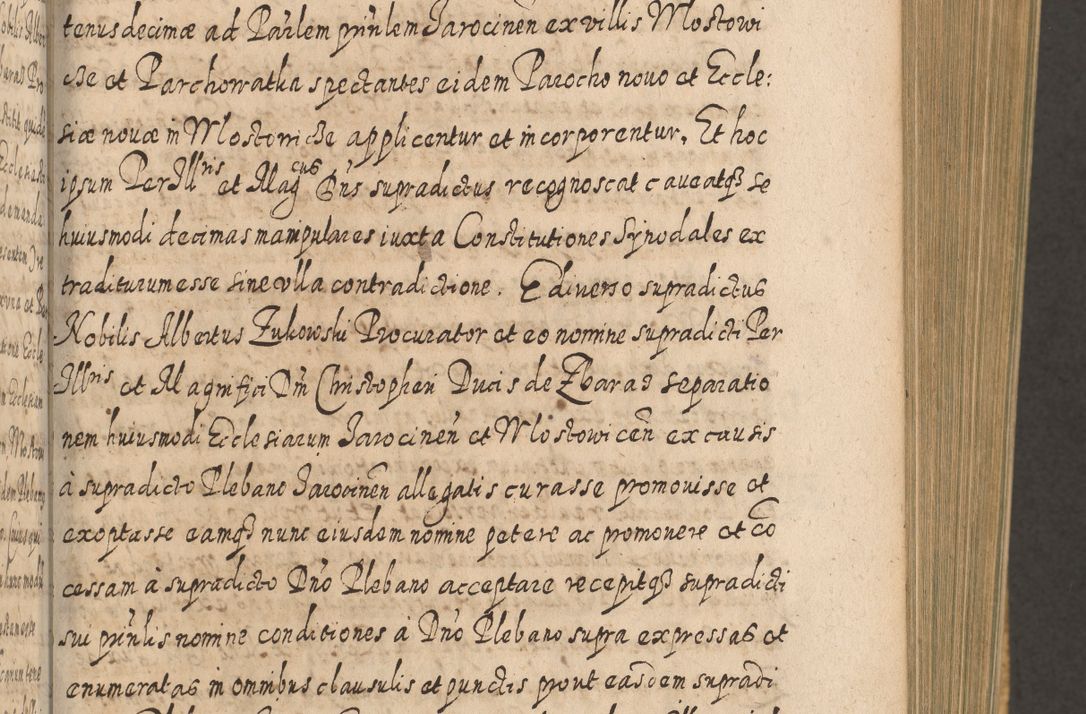 tenus decimæ ad Parlem prnlem Jarocinen ex villis Mlostowi
cze et Parchowatka spectantes eidem Parocho novo et Eccle:
siæ novæ in Mlostowicze applicentur et incorporentur. Et hoc
ipsum Per Illris et Magcus Dns supradictus recognoscat caveatq se
huiusmodi decimas manipulares iuxta Constitutiones Synodales ex
traditurum esse sine vlla contradictione. E diverso supradictus
Nobilis Albertus Zukowski Procurator et eo nomine supradicti Per
Illris et Magnifici Dni Christopheri Ducis de Zbaraz separatio
nem huiusmodi Ecclesiarum Jarocinen et Mlostowicen ex causis
à supradicto Plebano Jarocinen allegatis curasse promovisse et
exoptasse eamq nunc eiusdem nomine petere ac promovere et co
cessam à supradicto Dno Plebano acceptare recepitq supradicti
sui prnlis nomine conditiones à Dno Plebano supra expressas et
enumeratas in omnibus clausulis et punctis prout easdem supradi